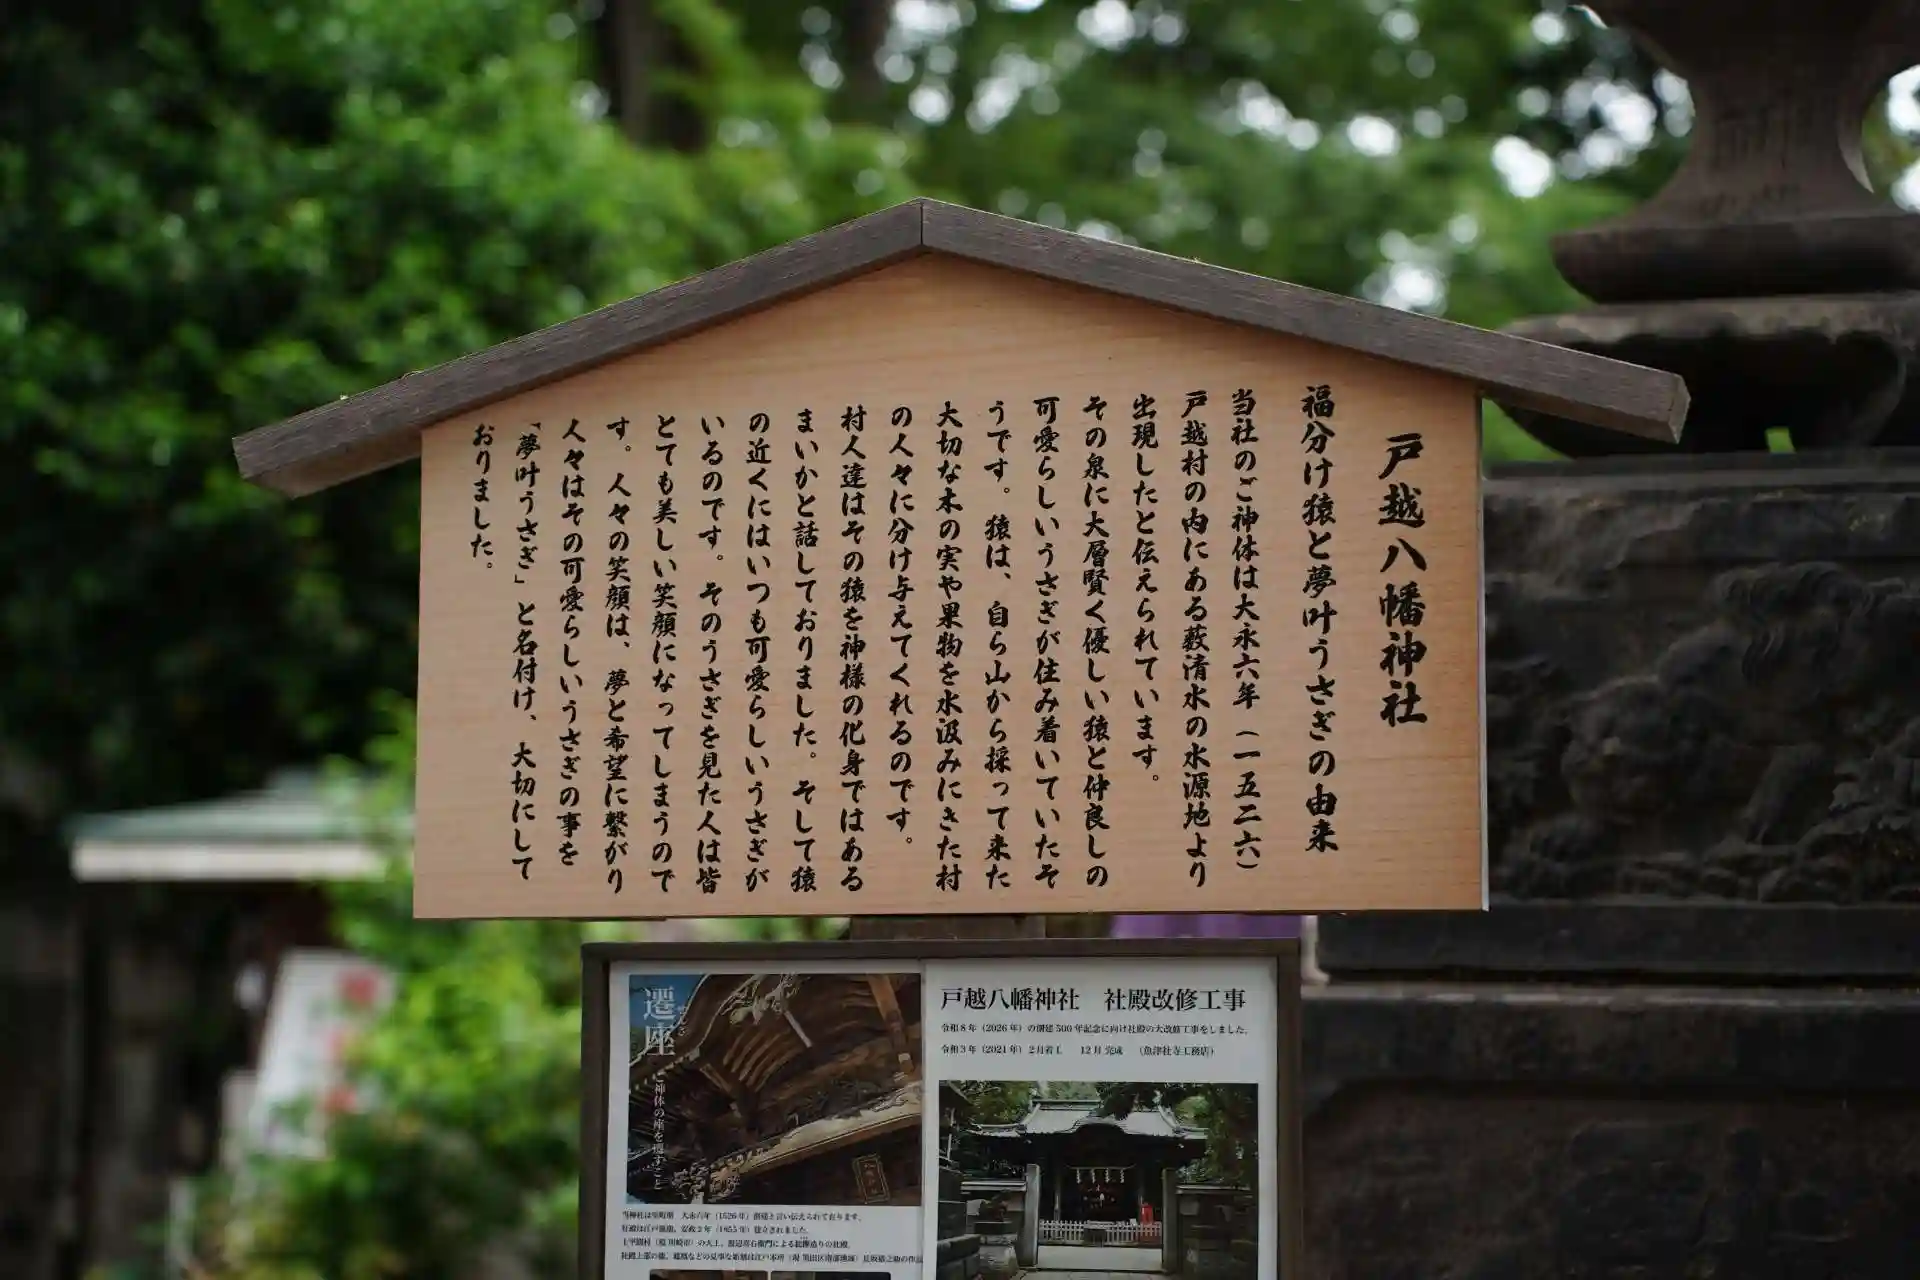 戸越八幡神社
福分け猿と夢叶うさぎの由来
当社のご神体は大永六年（一五二六）
戸越村の内にある薮清水の水源地より
出現したと伝えられています。
その泉に大層賢く優しい猿と仲良しの
可愛らしいうさぎが住み着いていたそ
うです。猿は、自ら山から採って来た
大切な木の実や果物を水汲みにきた村
の人々に分け与えてくれるのです。
村人達はその猿を神様の化身ではある
まいかと話しておりました。そして猿
の近くにはいつも可愛らしいうさぎが
いるのです。そのうさぎを見た人は皆
とても美しい笑顔になってしまうので
す。人々の笑顔は、夢と希望に繋がり
人々はその可愛らしいうさぎの事を
「夢叶うさぎ」と名付け、大切にして
おりました。
遷座
せんざ
ご神体の座を遷すこと
当神社は室町期　大永六年（1526年）創建と言い伝えられております。
社殿は江戸後期、安政2年（1855年）建立されました。
戸越八幡神社　社殿改修工事
令和8年（2026年）の創建500年記念に向け社殿の大改修工事をしました。
令和3年（2021年）2月着工　12月完成　（魚津社寺工務店）